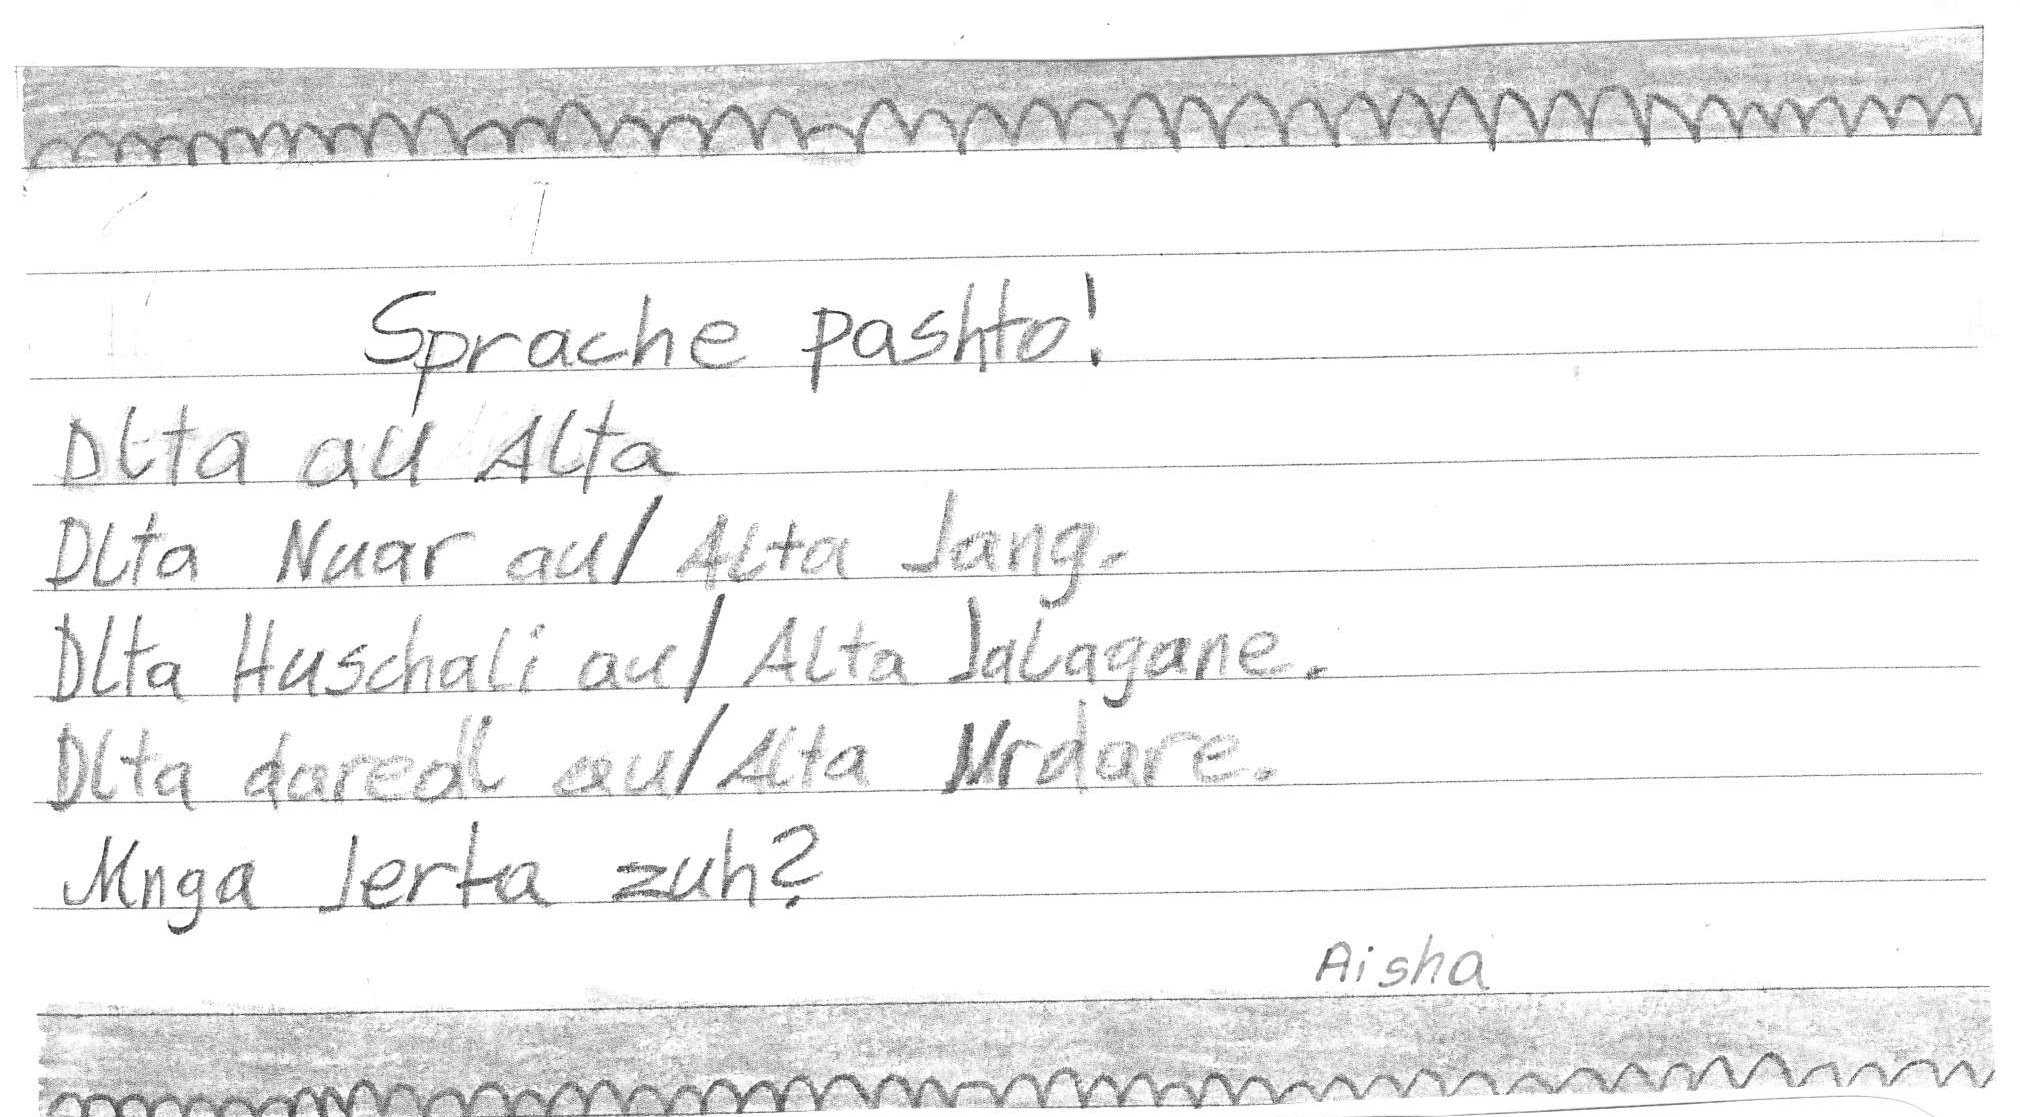 Sprache pashto!
Dlta au Alta
Dlta Nuar au/ Alta Jang.
Dlta Huschali au/ Alta Jalagane.
Dlta daredli au/ Alta Mrdare.
Mnga Jerta zuh?
Aisha